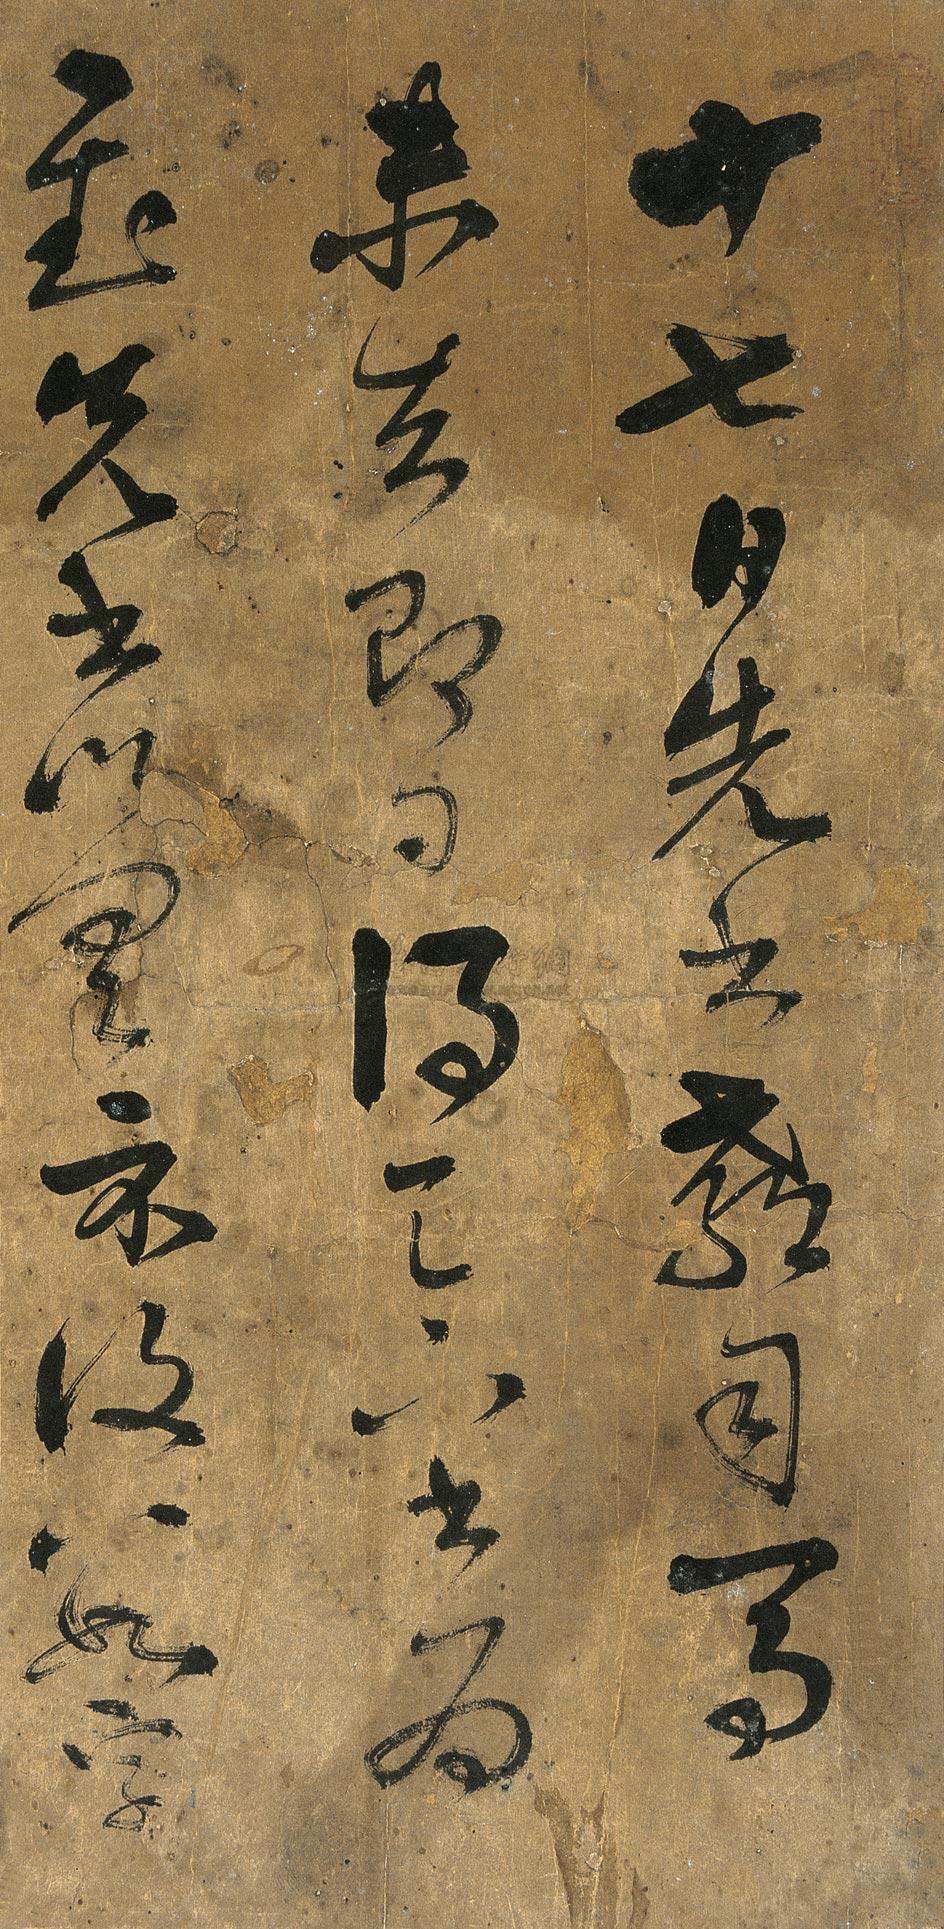 十七日先書郗司馬
未去即日得足下書為
慰先書以具示復數字